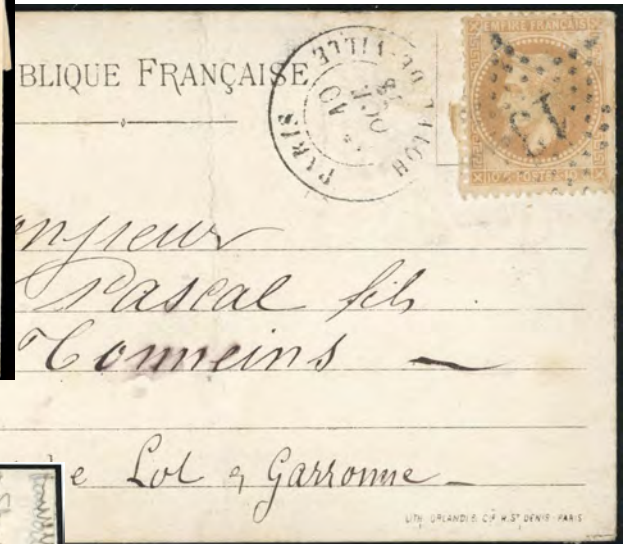 BLIQUE FRANÇAISE
PARIS HOTEL DE VILLE
10
OCT
EMPIRE FRANÇAIS
13
10 c POSTES 10 c
onsieur
Pascal fils
Tonneins —
e Lot & Garronne —
LITH. ORLANDI R. DU Fg St DENIS PARIS